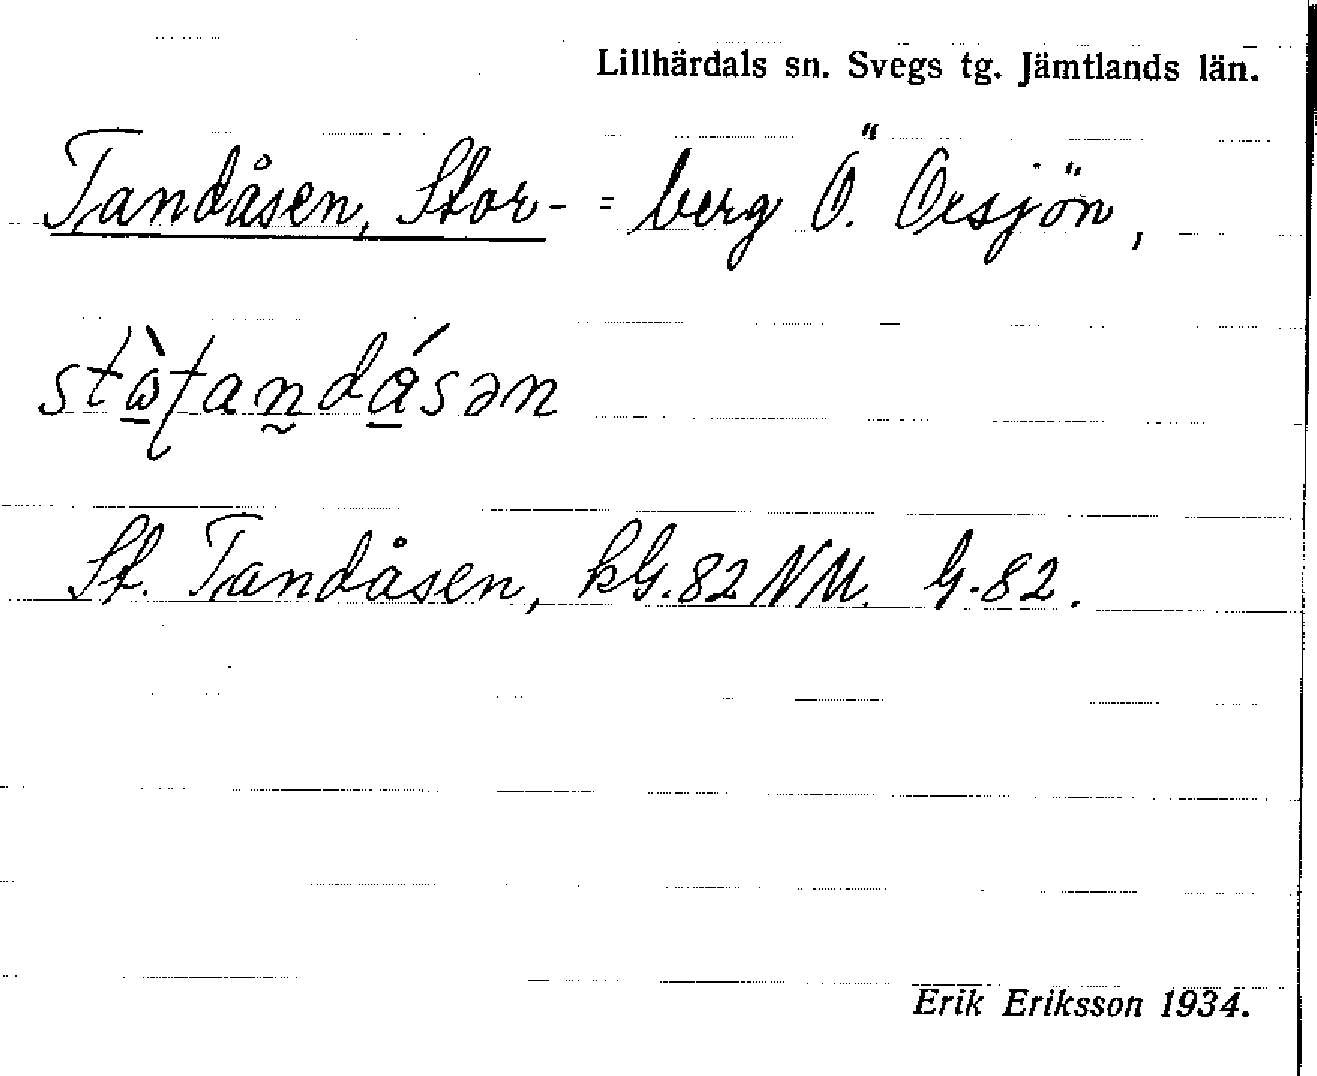 Lillhärdals sn. Svegs tg. Jämtlands län.
Tandåsen, Stor- = berg Ö. Orsjön,
St. Tandåsen, kG. 82 NM. G. 82.
Erik Eriksson 1934.